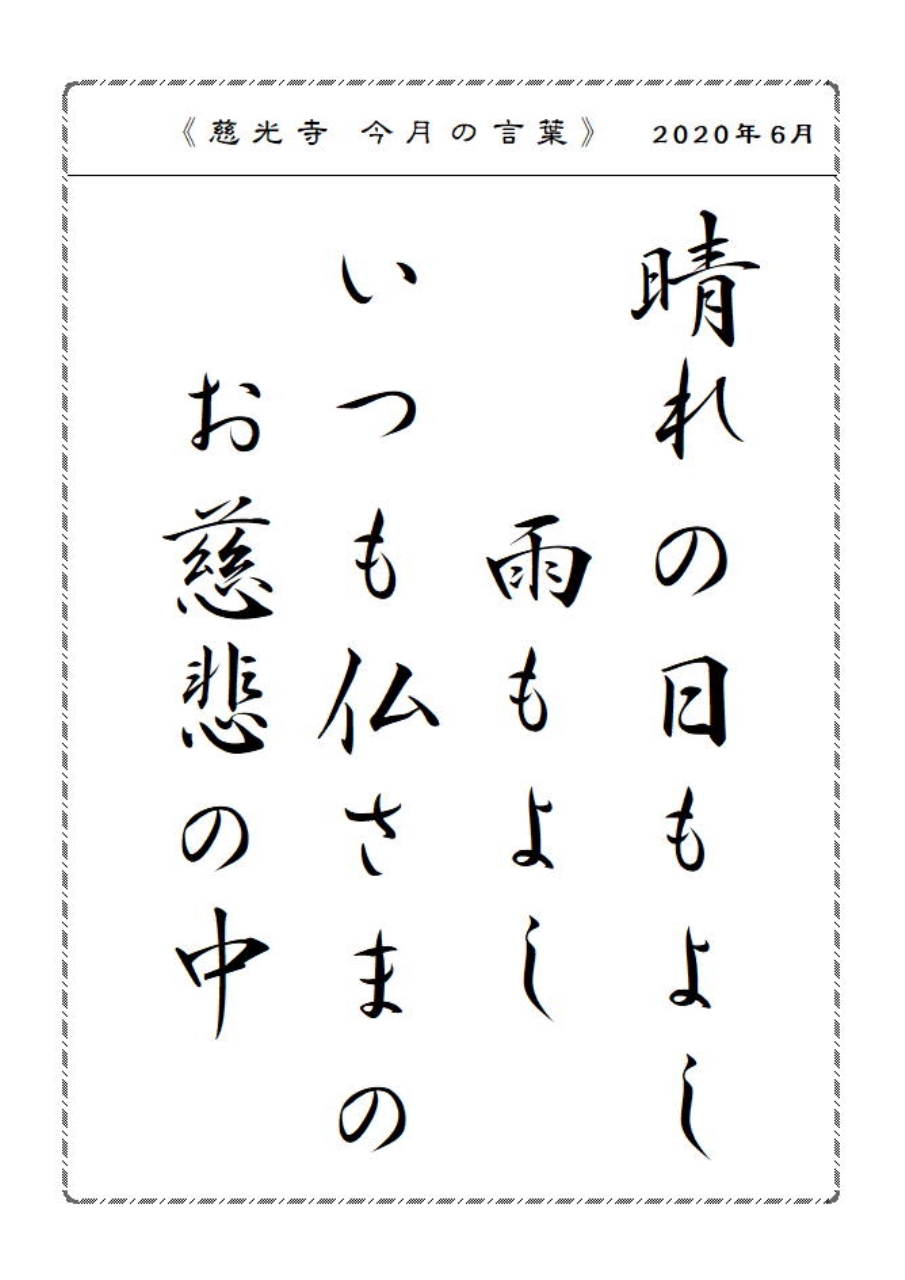 《慈光寺 今月の言葉》 2020年6月
晴れの日もよし
雨もよし
いつも仏さまの
お慈悲の中